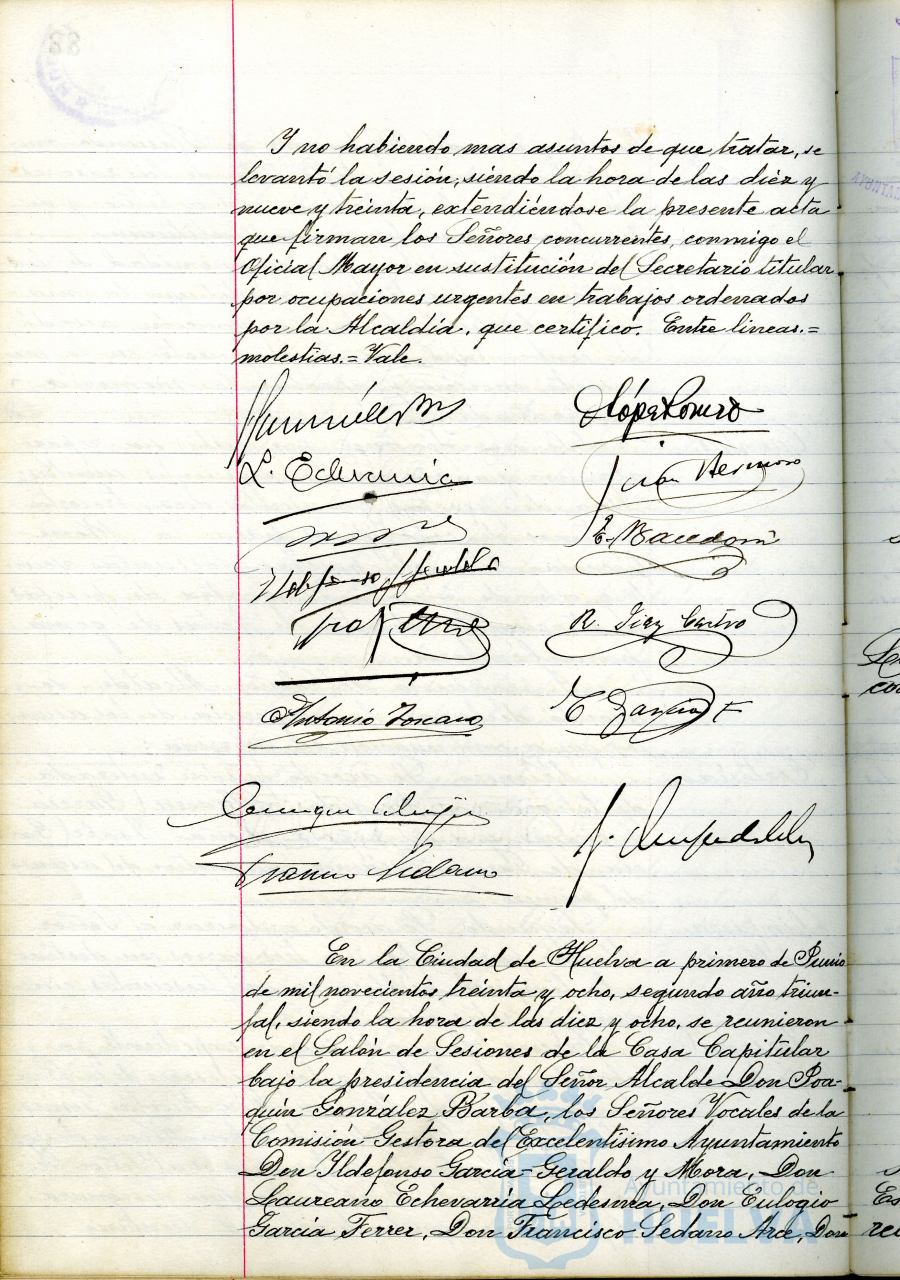 88
Y no habiendo mas asuntos de que tratar, se
levantó la sesión, siendo la hora de las diez y
nueve y treinta, extendiéndose la presente acta
que firman los Señores concurrentes, conmigo el
Oficial Mayor en sustitución del Secretario titular
por ocupaciones urgentes en trabajos ordenados
por la Alcaldía, que certifico. Entre lineas.=
molestias.= Vale.
López Romero
L. Echevarria
Hermoso
Ildefonso
R. Diaz Castro
Antonio Toscano
E Garcia F
Enrique
En la Ciudad de Huelva a primero de Junio
de mil novecientos treinta y ocho, segundo año triun-
fal, siendo la hora de las diez y ocho, se reunieron
en el Salón de Sesiones de la Casa Capitular
bajo la presidencia del Señor Alcalde Don Joa-
quín González Barba, los Señores Vocales de la
Comisión Gestora del Excelentisimo Ayuntamiento
Don Ildefonso Garcia=Geraldo y Mora, Don
Laureano Echevarria Ledesma, Don Eulogio
Garcia Ferrer, Don Francisco Sedano Arce, Don
Ayuntamiento de
HUELVA